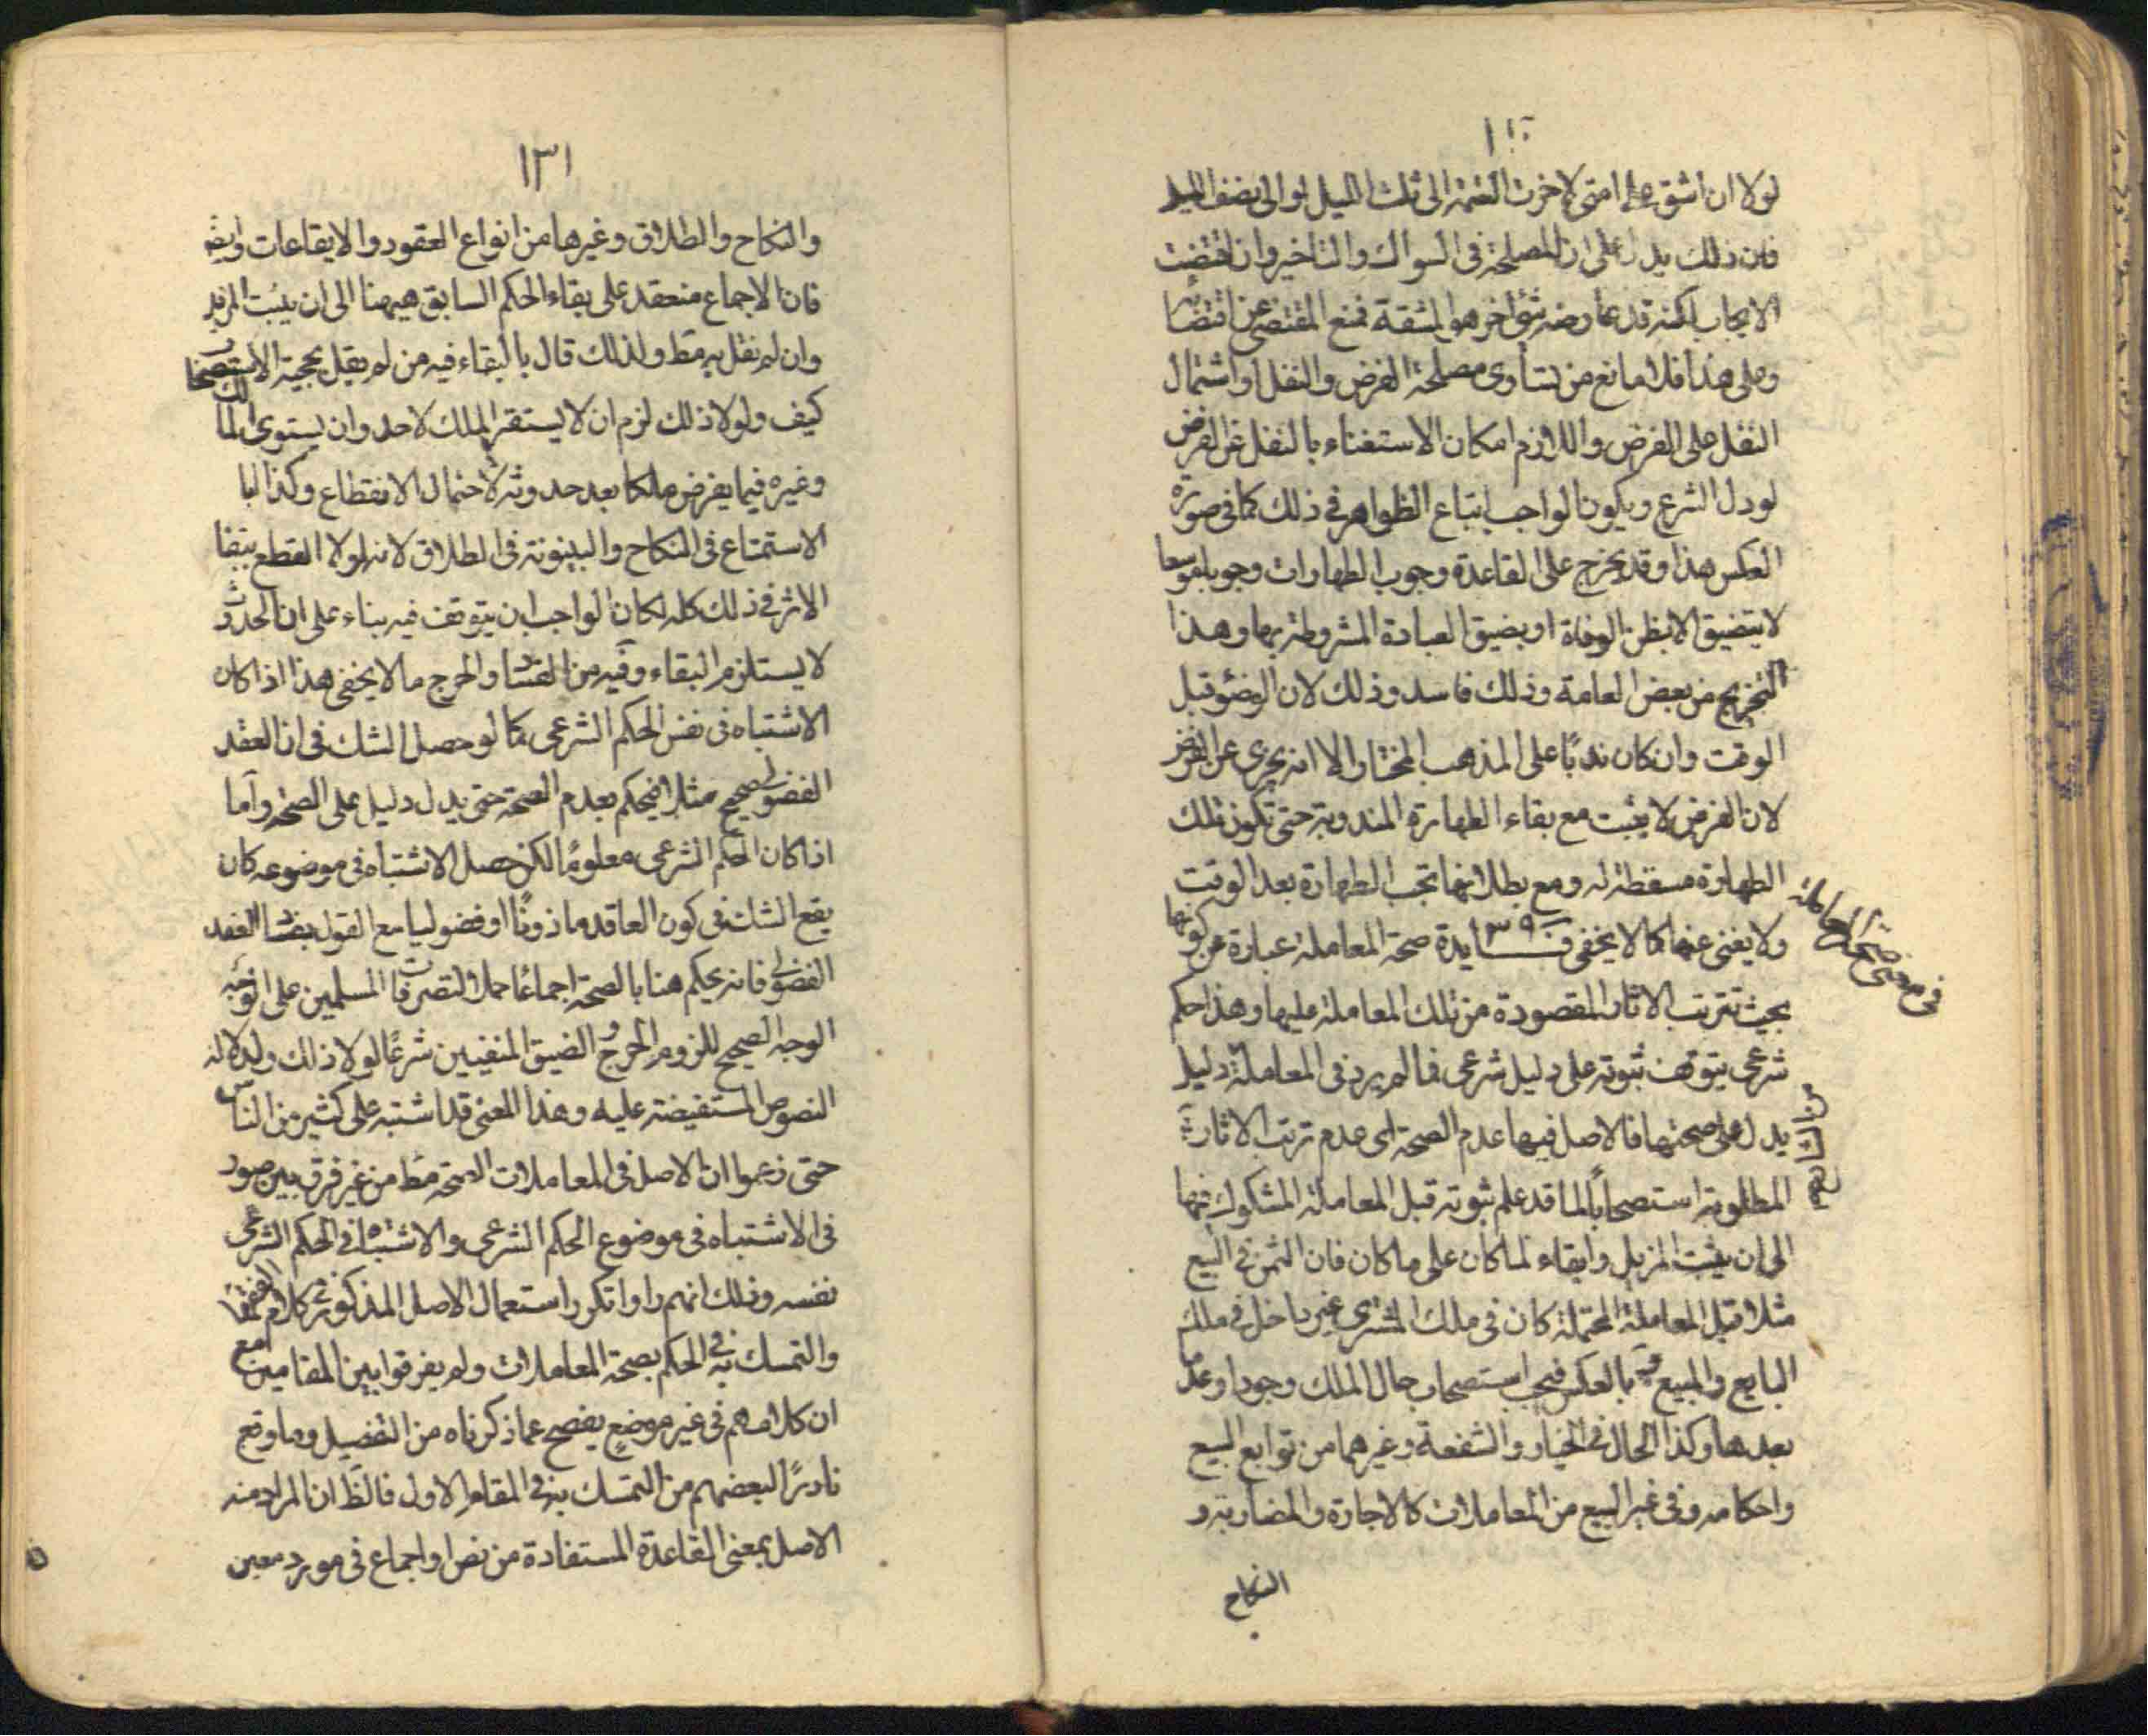 لولا ان اشق على امتى لاخرت العتمة الى ثلث الليل او الى نصف الليل
فان ذلك يدل على ان المصلحة فى السواك والتاخير وان اقتضت
الايجاب لكنه قد عارضه شئ اخر هو المشقة فمنع المقتضى عن اقتضائه
وعلى هذا فلا مانع من تساوى مصلحة الفرض والنفل او اشتمال
النفل على الفرض واللازم امكان الاستغناء بالنفل عن الفرض
لو دل الشرع ويكون الواجب اتباع الظواهر فى ذلك كما فى صورة
العكس هذا وقد يخرج على القاعدة وجوب الطهارات وجوبا موسعا
لا يتضيق الا بظن الوفاة او بضيق العبادة المشروطة بها وهذا
التخريج من بعض العامة وذلك فاسد وذلك لان الوضؤ قبل
الوقت وان كان ندبًا على المذهب المختار الا انه يجزى عن الفرض
لان الفرض لا يثبت مع بقاء الطهارة المندوبة حتى تكون تلك
الطهارة مسقطة له ومع بطلانها تجب الطهارة بعد الوقت
ولا يغنى عنها كما لا يخفى فــايدة ٣٩ صحة المعاملة عبارة عن كونها
فى معنى صحة المعاملة
بحيث تترتب الاثار المقصودة من تلك المعاملة عليها وهذا حكم
شرعى يتوقف ثبوته على دليل شرعى فما لم يرد فى المعاملة دليل
من الشارع
يدل على صحتها فالاصل فيها عدم الصحة اى عدم ترتب الاثار
المطلوبة استصحابًا لما قد علم ثبوته قبل المعاملة المشكوك فيها
الى ان يثبت المزيل وابقاء لما كان على ما كان فان الثمن فى البيع
مثلا قبل المعاملة المحتملة كان فى ملك المشترى غير داخل فى ملك
البايع والمبيع بالعكس فيجب استصحاب حال الملك وجودا وعدما
بعدها وكذا الحال فى الخيار والشفعة وغيرهما من توابع البيع
واحكامه وفى غير البيع من المعاملات كالاجارة والمضاربة و
النكاح
١٣١
والنكاح والطلاق وغيرها من انواع العقود والايقاعات وايضا
فان الاجماع منعقد على بقاء الحكم السابق هيهنا الى ان يثبت المزيل
وان لم نقل به مط ولذلك قال بالبقاء فيه من لم يقل بحجية الاستصحاب
كيف ولولا ذلك لزم ان لا يستقر الملك لاحد وان يستوى المالك
وغيره فيما يفرض ملكا بعد حدوثه لاحتمال الانقطاع وكذا
الاستمتاع فى النكاح والبينونة فى الطلاق لانه لولا القطع ببقاء
الاثر فى ذلك كله لكان الواجب ان يتوقف فيه بناء على ان الحدوث
لا يستلزم البقاء وفيه من الفساد والحرج ما لا يخفى هذا اذا كان
الاشتباه فى نفس الحكم الشرعى كما لو حصل الشك فى ان العقد
الفضولى صحيح مثلا فيحكم بعدم الصحة حتى يدل دليل على الصحة واما
اذا كان الحكم الشرعى معلومًا لكن حصل الاشتباه فى موضوعه كان
يقع الشك فى كون العاقد ماذونًا او فضوليا مع القول بفساد العقد
الفضولى فانه يحكم هنا بالصحة اجماعًا حملا لتصرفات المسلمين على
الوجه الصحيح للزوم الحرج والضيق المنفيين شرعًا لولا ذلك ولدلالة
النصوص المستفيضة عليه وهذا المعنى قد اشتبه على كثير من الناس
حتى زعموا ان الاصل فى المعاملات الصحة مط من غير فرق بين صور
فى الاشتباه فى موضوع الحكم الشرعى والاشتباه فى الحكم الشرعى
نفسه وذلك انهم راوا تكرر استعمال الاصل المذكور فى كلام الفقهاء
والتمسك به فى الحكم بصحة المعاملات ولم يفرقوا بين المقامين مع
ان كلامهم فى غير موضع يفصح عما ذكرناه من التفصيل وما وقع
نادرًا لبعضهم من التمسك به فى المقام الاول فالظ ان المراد منه
الاصل بمعنى القاعدة المستفادة من نص او اجماع فى مورد معين